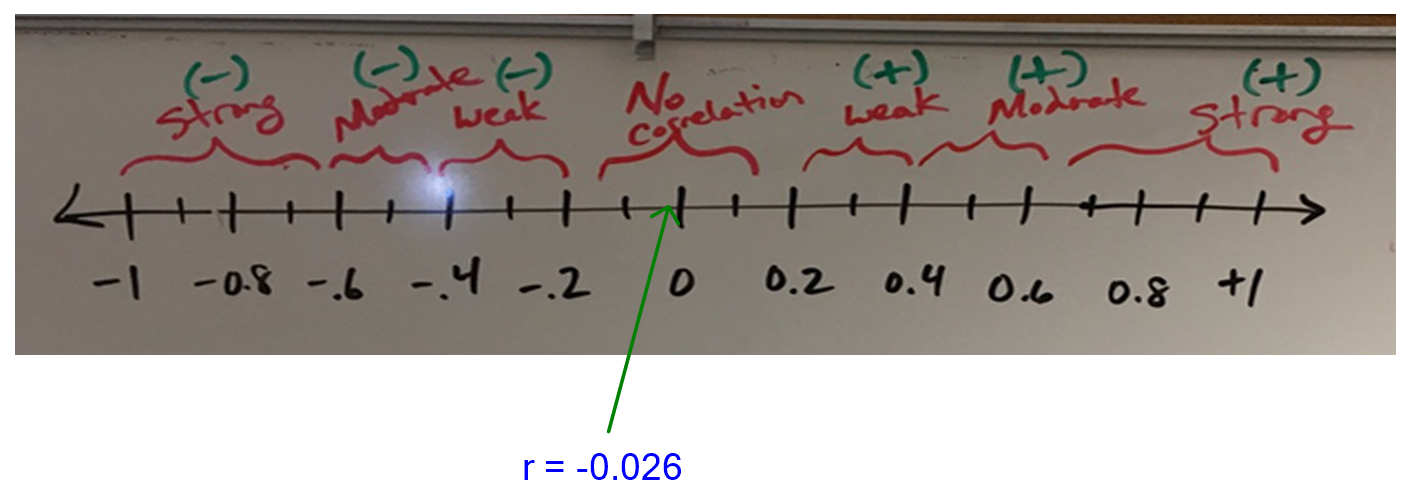 (-) (-) (-) (+) (+) (+)
Strong Moderate weak No Correlation weak Moderate Strong
-1 -0.8 -.6 -.4 -.2 0 0.2 0.4 0.6 0.8 +1
r = -0.026